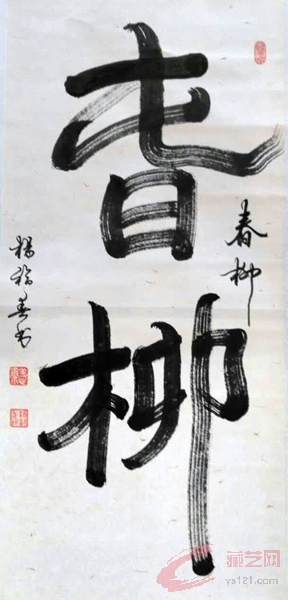 春柳
春柳
楊福春书
藏艺网
ya121.com